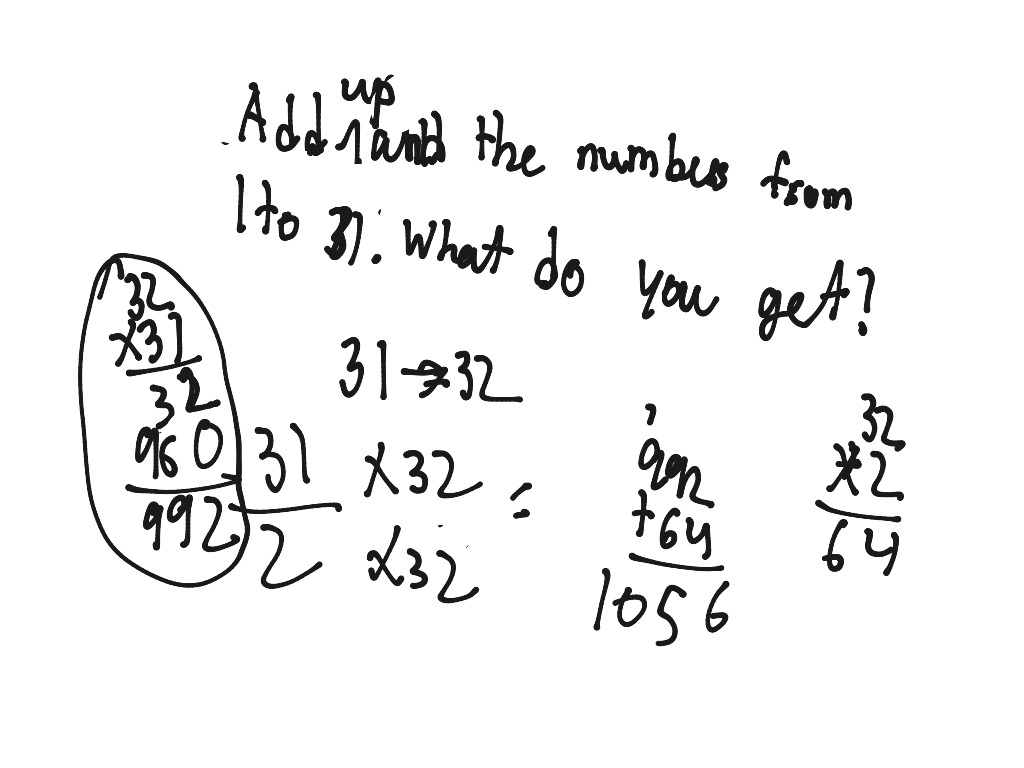 up
Add all the numbers from
1 to 31. What do you get?
32
x31
32
960
992
31 → 32
31 x32 =
2 x32
992
+64
1056
32
x2
64